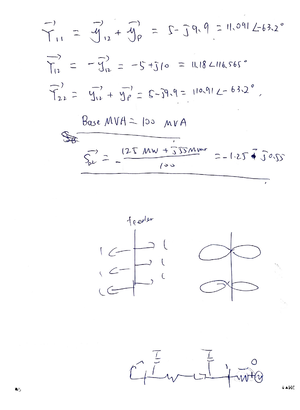 Y⃗₁₁ = y⃗₁₂ + y⃗p = 5-j9.9 = 11.091∠-63.2°
Y⃗₁₂ = -y⃗₁₂ = -5+j10 = 11.18∠116.565°
Y⃗₂₂ = y⃗₁₂ + y⃗p = 5-j9.9 = 110.91∠-63.2°.
Base MVA = 100 MVA
= - 125 MW + j55 Mvar / 100 = -1.25 j0.55
feeder